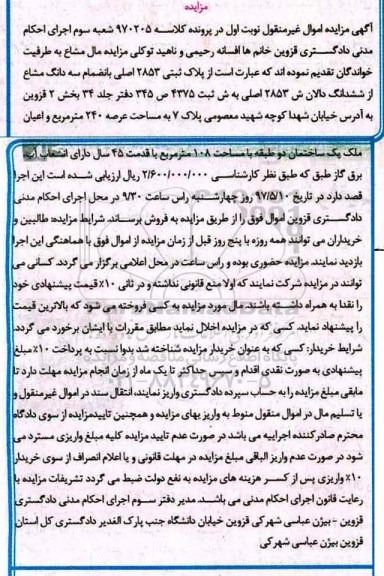 مزایده
آگهی مزایده اموال غیرمنقول نوبت اول در پرونده کلاسه ۹۷۰۲۰۵ شعبه سوم اجرای احکام
مدنی دادگستری قزوین خانم ها افسانه رحیمی و ناهید توکلی مزایده مال مشاع به طرفیت
خواندگان تقدیم نموده اند که عبارت است از پلاک ثبتی ۲۸۵۳ اصلی بانضمام سه دانگ مشاع
از ششدانگ دالان ش ۲۸۵۳ اصلی به ش ثبت ۴۳۷۵ ص ۳۴۵ دفتر جلد ۳۴ بخش ۲ قزوین
به آدرس خیابان شهدا کوچه شهید معصومی پلاک ۷ به مساحت عرصه ۲۴۰ مترمربع و اعیان
ملک یک ساختمان دو طبقه با مساحت ۱۰۸ مترمربع با قدمت ۴۵ سال دارای انشعاب آب
برق گاز طبق که طبق نظر کارشناسی ۲/۶۰۰/۰۰۰/۰۰۰ ریال ارزیابی شده است این اجرا
قصد دارد در تاریخ ۹۷/۵/۱۰ روز چهارشنبه راس ساعت ۹/۳۰ در محل اجرای احکام مدنی
دادگستری قزوین اموال فوق را از طریق مزایده به فروش برساند. شرایط مزایده: طالبین و
خریداران می توانند همه روزه با پنج روز قبل از زمان مزایده از اموال فوق با هماهنگی این اجرا
بازدید نمایند. مزایده حضوری بوده و راس ساعت در محل اعلامی برگزار می گردد. کسانی می
توانند در مزایده شرکت نمایند که اولا منع قانونی نداشته و در ثانی ۱۰٪ قیمت پیشنهادی خود
را نقدا به همراه داشته باشند. مال مورد مزایده به کسی فروخته می شود که بالاترین قیمت
را پیشنهاد نماید. کسی که در مزایده اخلال نماید مطابق مقررات با ایشان برخورد می گردد.
شرایط خریدار: کسی که به عنوان خریدار مزایده شناخته شد بدوا نسبت به پرداخت ۱۰٪ مبلغ
پیشنهادی به صورت نقدی اقدام و سپس حداکثر تا یک ماه از زمان انجام مزایده مهلت دارد تا
مابقی مبلغ مزایده را به حساب سپرده دادگستری واریز نمایند. انتقال سند در اموال غیرمنقول و
یا تسلیم مال در اموال منقول منوط به واریز بهای مزایده و همچنین تاییدمزایده از سوی دادگاه
محترم صادرکننده اجراییه می باشد در صورت عدم تایید مزایده کلیه مبلغ واریزی مسترد می
شود در صورت عدم واریز الباقی مبلغ مزایده در مهلت قانونی و یا اعلام انصراف از سوی خریدار
۱۰٪ واریزی پس از کسر هزینه های مزایده به نفع دولت ضبط می گردد تشریفات مزایده با
رعایت قانون اجرای احکام مدنی می باشد. مدیر دفتر سوم اجرای احکام مدنی دادگستری
قزوین - بیژن عباسی شهرکی قزوین خیابان دانشگاه جنب پارک الغدیر دادگستری کل استان
قزوین بیژن عباسی شهرکی